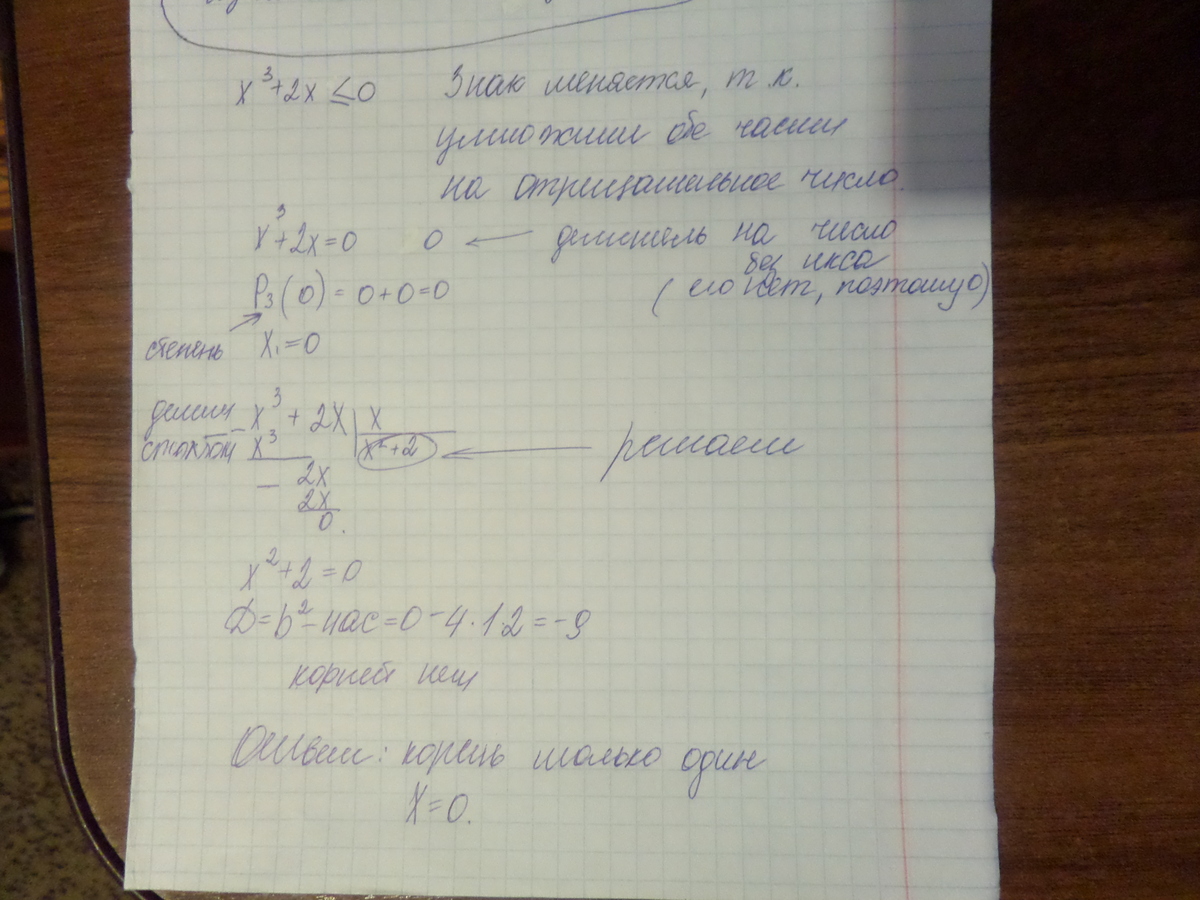 x³+2x ≤ 0 Знак меняется, т.к.
умножили обе части
на отрицательное число.
x³+2x=0 0 ← делитель на число
без икса
P₃(0) = 0+0=0 (его нет, поэтому 0)
степень x₁=0
делим x³ + 2x | x
столбом x³ x²+2 ← решаем
− 2x
2x
0.
x²+2=0
D=b²−4ac=0−4·1·2=−9
корней нет
Ответ: корень только один
x=0.